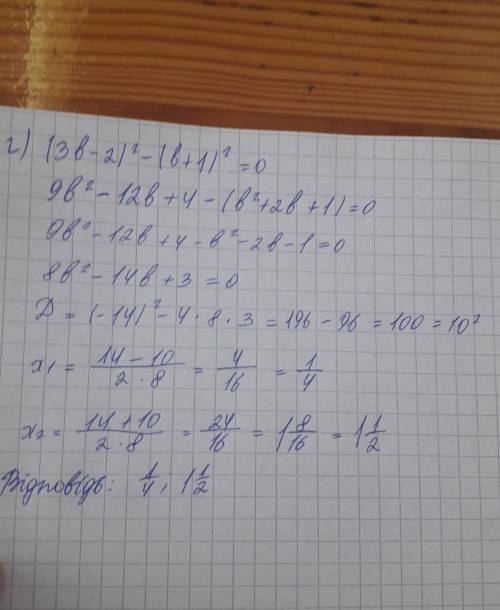 г) (3в-2)² - (в+1)² = 0
9в² - 12в + 4 - (в²+2в+1) = 0
9в² - 12в + 4 - в² - 2в - 1 = 0
8в² - 14в + 3 = 0
Д = (-14)² - 4·8·3 = 196 - 96 = 100 = 10²
x₁ = (14-10)/(2·8) = 4/16 = 1/4
x₂ = (14+10)/(2·8) = 24/16 = 1 8/16 = 1 1/2
Відповідь: 1/4; 1 1/2